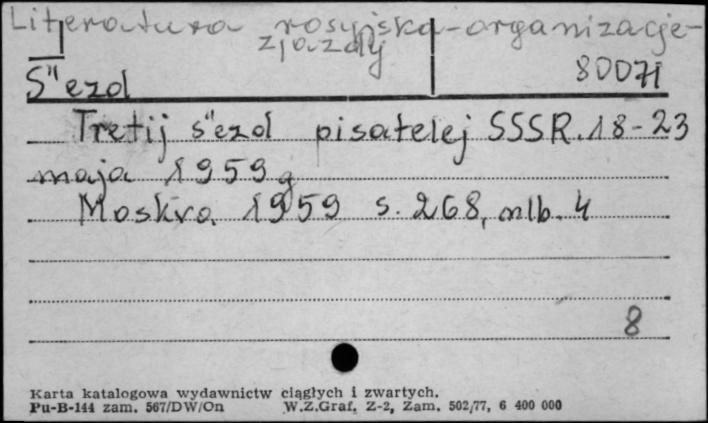 Literatura rosyjska - organizacje -
zjazdy
80071
S"ezd
Tretij s"ezd pisatelej SSSR. 18-23
maja 1959 g
Moskva 1959 s. 268, nlb. 4
8
Karta katalogowa wydawnictw ciągłych i zwartych.
Pu-B-144 zam. 567/DW/On W.Z.Graf. Z-2, Zam. 502/77, 6 400 000